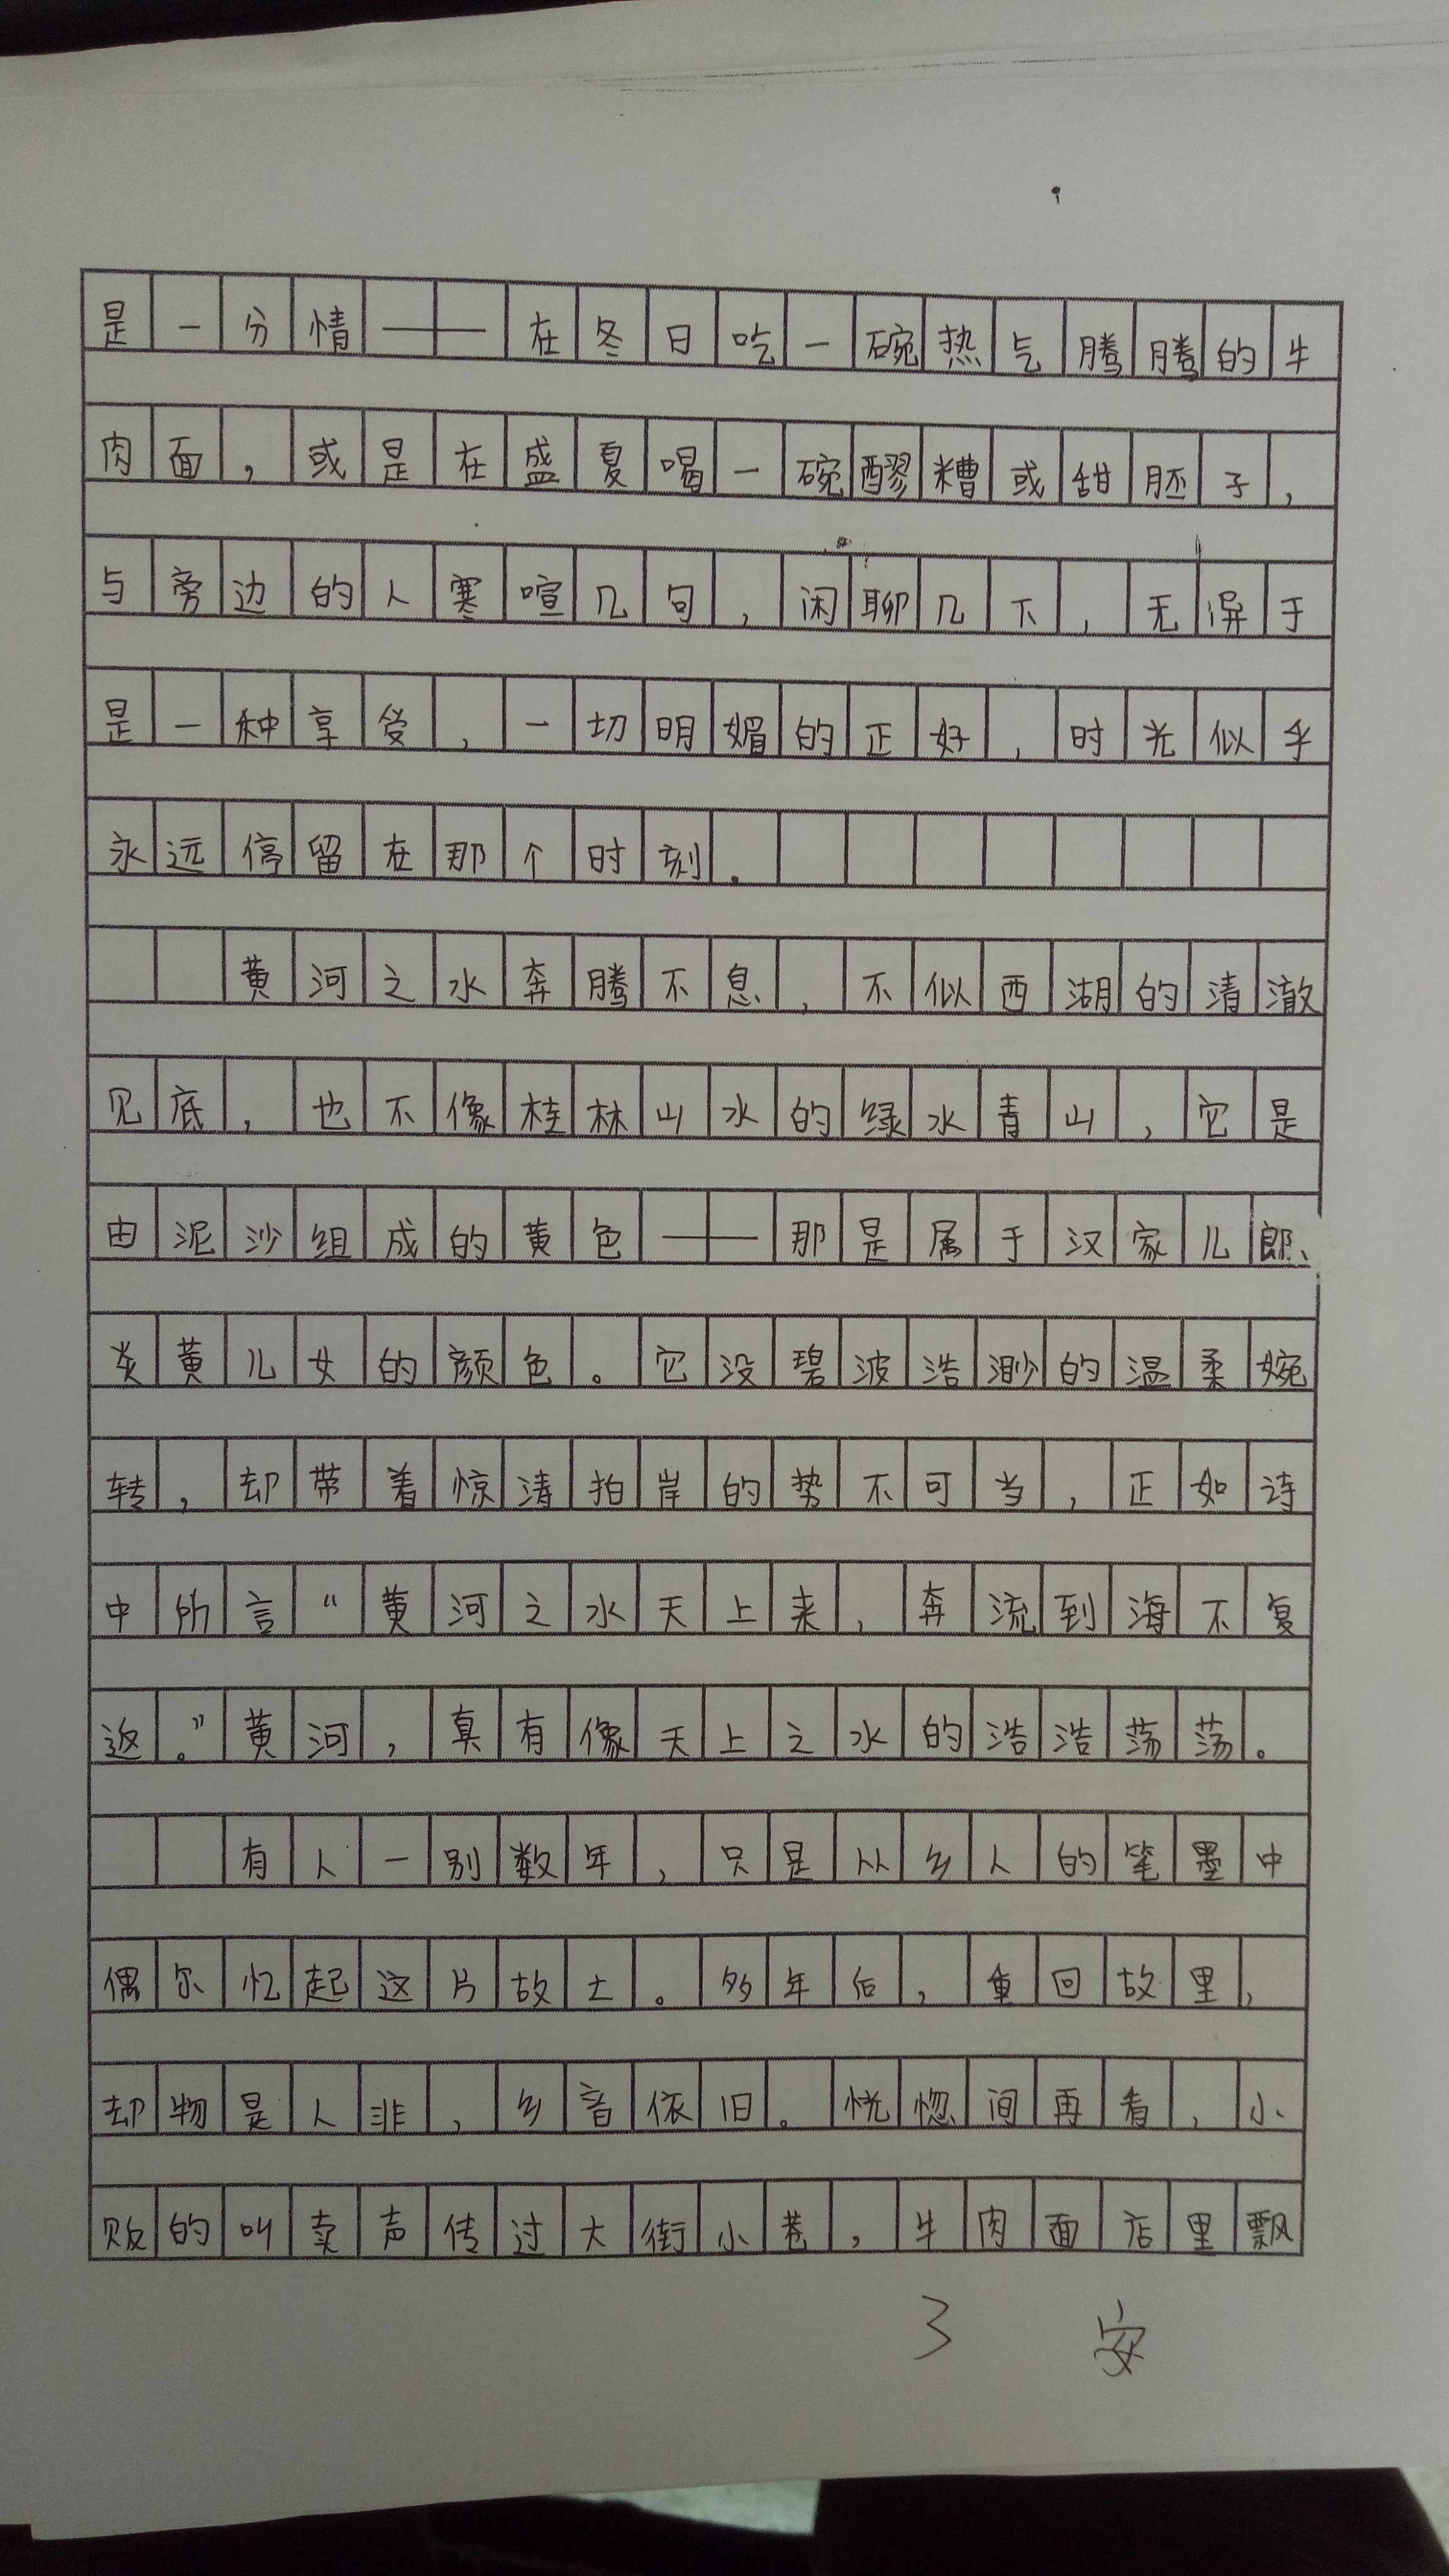 是一分情——在冬日吃一碗热气腾腾的牛
肉面，或是在盛夏喝一碗醪糟或甜胚子，
与旁边的人寒喧几句，闲聊几下，无异于
是一种享受，一切明媚的正好，时光似乎
永远停留在那个时刻。
黄河之水奔腾不息，不似西湖的清澈
见底，也不像桂林山水的绿水青山，它是
由泥沙组成的黄色——那是属于汉家儿郎、
炎黄儿女的颜色。它没碧波浩渺的温柔婉
转，却带着惊涛拍岸的势不可当，正如诗
中所言“黄河之水天上来，奔流到海不复
返。”黄河，真有像天上之水的浩浩荡荡。
有人一别数年，只是从乡人的笔墨中
偶尔忆起这片故土。多年后，重回故里，
却物是人非，乡音依旧。恍惚间再看，小
贩的叫卖声传过大街小巷，牛肉面店里飘
3 安